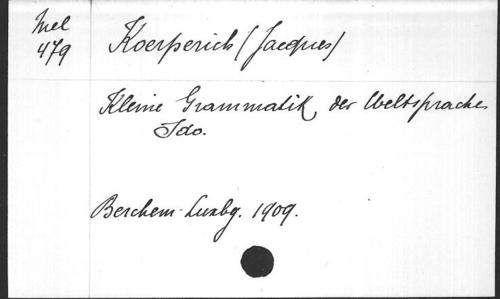 Mel
479
Koerperich (Jacques)
Kleine Grammatik der Weltsprache
Ido.
Berchem-Luxbg. 1909.